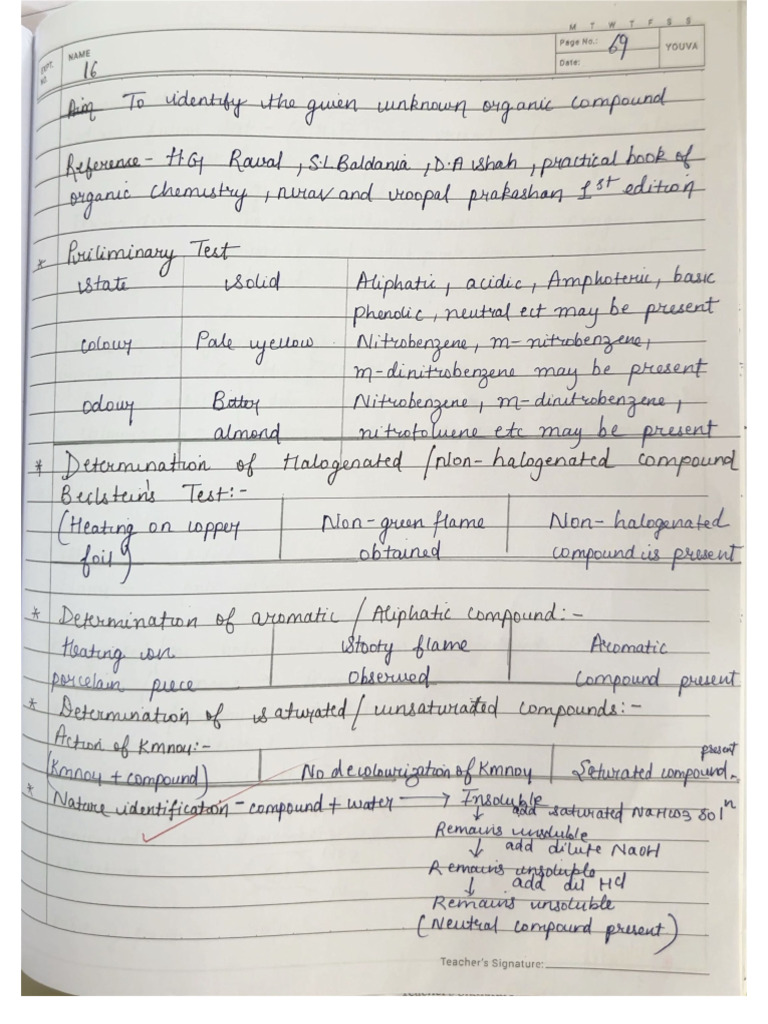 M T W T F S S
EXPT. NO. NAME Page No.: 69 YOUVA
16 Date:
Aim To identify the given unknown organic compound
Reference - HG Rawal, S.L Baldania, D.A shah, practical book of
organic chemistry, nirav and roopal prakashan 1st edition
* Priliminary Test
state solid Aliphatic, acidic, Amphoteric, basic
phenolic, neutral ect may be present
colour Pale yellow Nitrobenzene, m-nitrobenzene,
m-dinitrobenzene may be present
odour Bitter Nitrobenzene, m-dinitrobenzene,
almond nitrotoluene etc may be present
* Determination of Halogenated / Non-halogenated compound
Beilstein's Test:-
(Heating on copper Non-green flame Non-halogenated
foil) obtained compound is present
* Determination of aromatic / Aliphatic compound:-
Heating on Sooty flame Aromatic
porcelain piece observed compound present
* Determination of saturated / unsaturated compounds:-
Action of Kmno4:- present
(Kmno4 + compound) No decolourization of Kmno4 Saturated compound
* Nature identification - compound + water → Insoluble
↓ add saturated NaHCO3 solⁿ
Remains insoluble
↓ add dilute NaOH
Remains insoluble
↓ add dil HCl
Remains insoluble
(Neutral compound present)
Teacher's Signature: